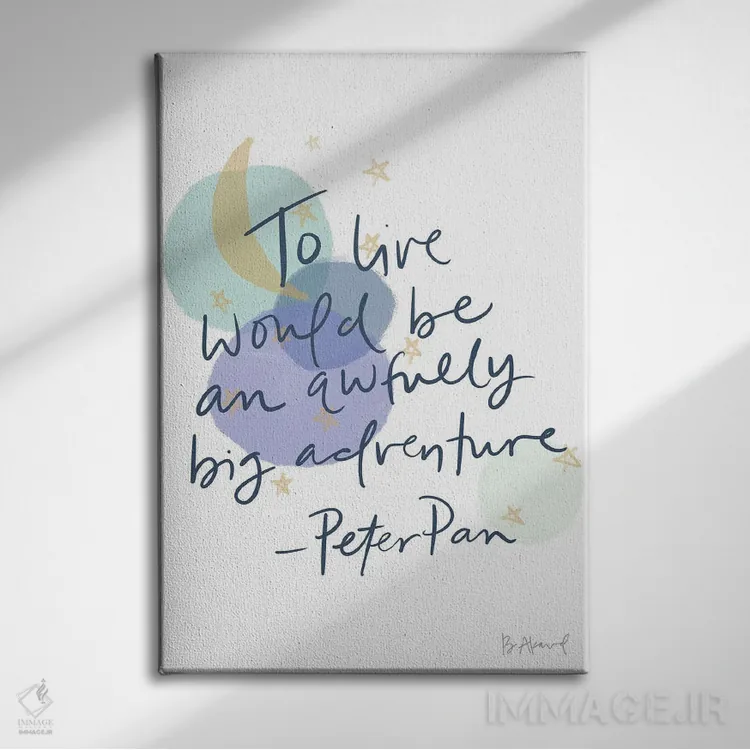 To live
would be
an awfully
big adventure
-Peter Pan
IMMAGE
IMMAGE.IR
IMMAGE.IR